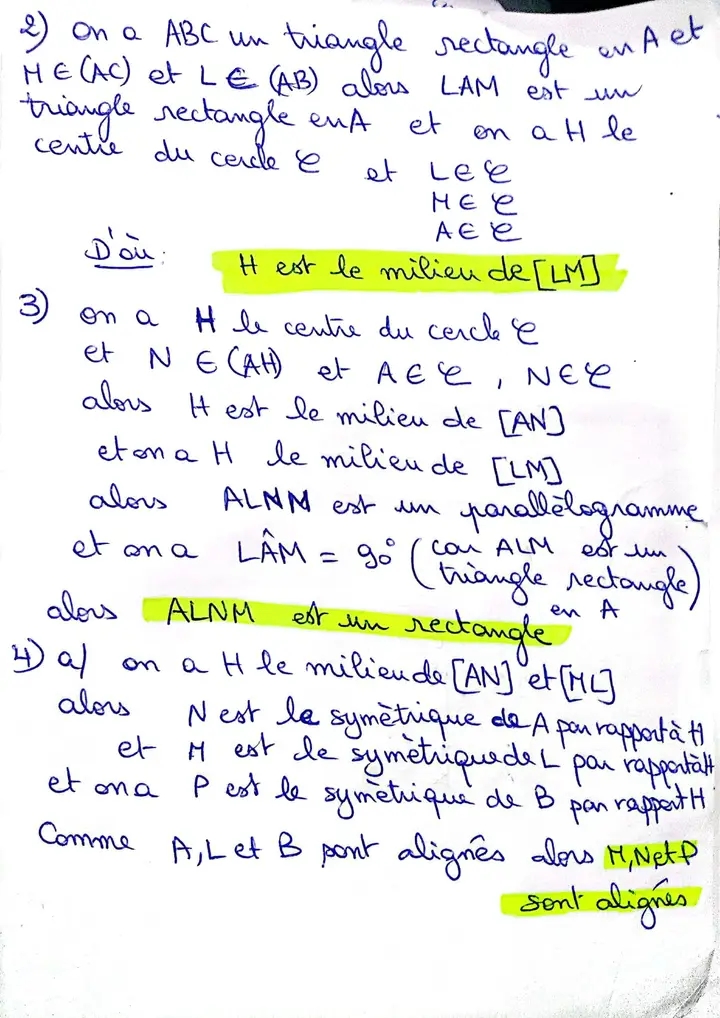 2) on a ABC un triangle rectangle en A et
M ∈ (AC) et L ∈ (AB) alors LAM est un
triangle rectangle en A et on a H le
centre du cercle 𝒞 et L ∈ 𝒞
M ∈ 𝒞
A ∈ 𝒞
D'où : H est le milieu de [LM]
3) on a H le centre du cercle 𝒞
et N ∈ (AH) et A ∈ 𝒞 , N ∈ 𝒞
alors H est le milieu de [AN]
et on a H le milieu de [LM]
alors ALNM est un parallèlogramme
et on a LÂM = 90° (car ALM est un
triangle rectangle)
en A
alors ALNM est un rectangle
4) a/ on a H le milieu de [AN] et [ML]
alors N est le symètrique de A par rapport à H
et M est le symètrique de L par rapport à H
et on a P est le symètrique de B par rapport H
Comme A, L et B pont alignés alors M, N et P
sont alignés